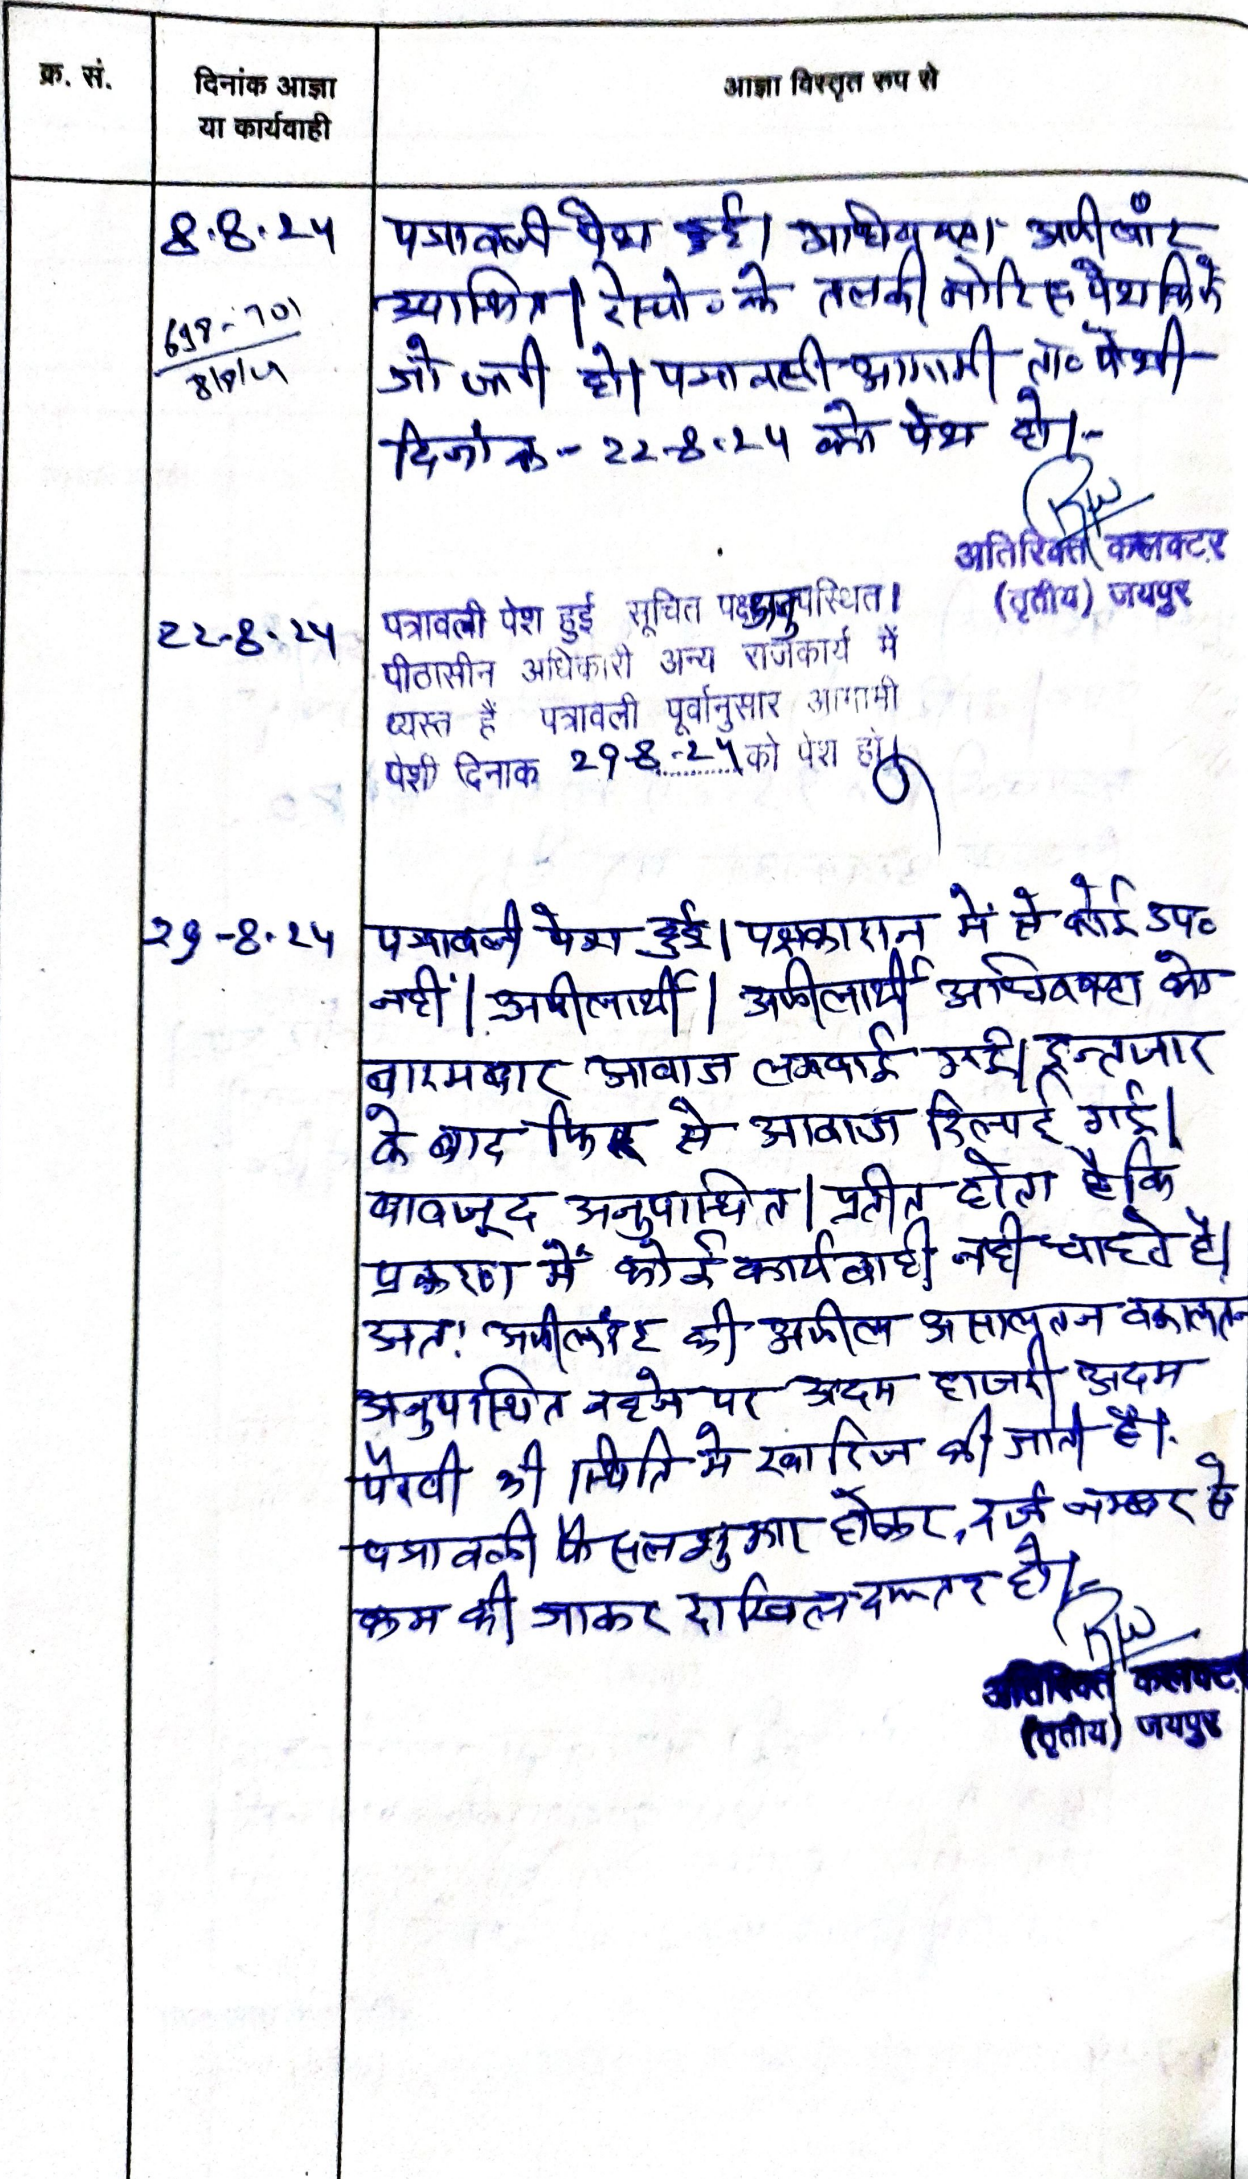 क्र. सं.
दिनांक आज्ञा
या कार्यवाही
आज्ञा विस्तृत रूप से
8.8.24
698-701
8/8/24
पत्रावली पेश हुई। अधिवक्ता अपीलांट
उपस्थित। रेस्पो० के तलबी नोटिस पेश किये
जो जारी हो। पत्रावली आगामी ता० पेशी
दिनांक- 22-8-24 को पेश हो।-
अतिरिक्त कलक्टर
(तृतीय) जयपुर
22-8-24
पत्रावली पेश हुई सूचित पक्ष अनुपस्थित।
पीठासीन अधिकारी अन्य राजकार्य में
व्यस्त हैं पत्रावली पूर्वानुसार आगामी
पेशी दिनाक 29-8-24 को पेश हो।
29-8-24
पत्रावली पेश हुई। पक्षकारान में से कोई उप०
नहीं। अपीलार्थी। अपीलार्थी अधिवक्ता को
बारम्बार आवाज लगवाई गई। इन्तजार
के बाद फिर से आवाज दिलाई गई।
बावजूद अनुपस्थित। प्रतीत होता है कि
प्रकरण में कोई कार्यवाही नहीं चाहते है।
अतः अपीलांट की अपील असालतन वकालतन
अनुपस्थित रहने पर अदम हाजरी अदम
पैरवी की स्थिति मे खारिज की जाती है।
पत्रावली फैसलशुमार होकर, दर्ज नम्बर से
कम की जाकर दाखिल दफ्तर हो।-
अतिरिक्त कलक्टर
(तृतीय) जयपुर